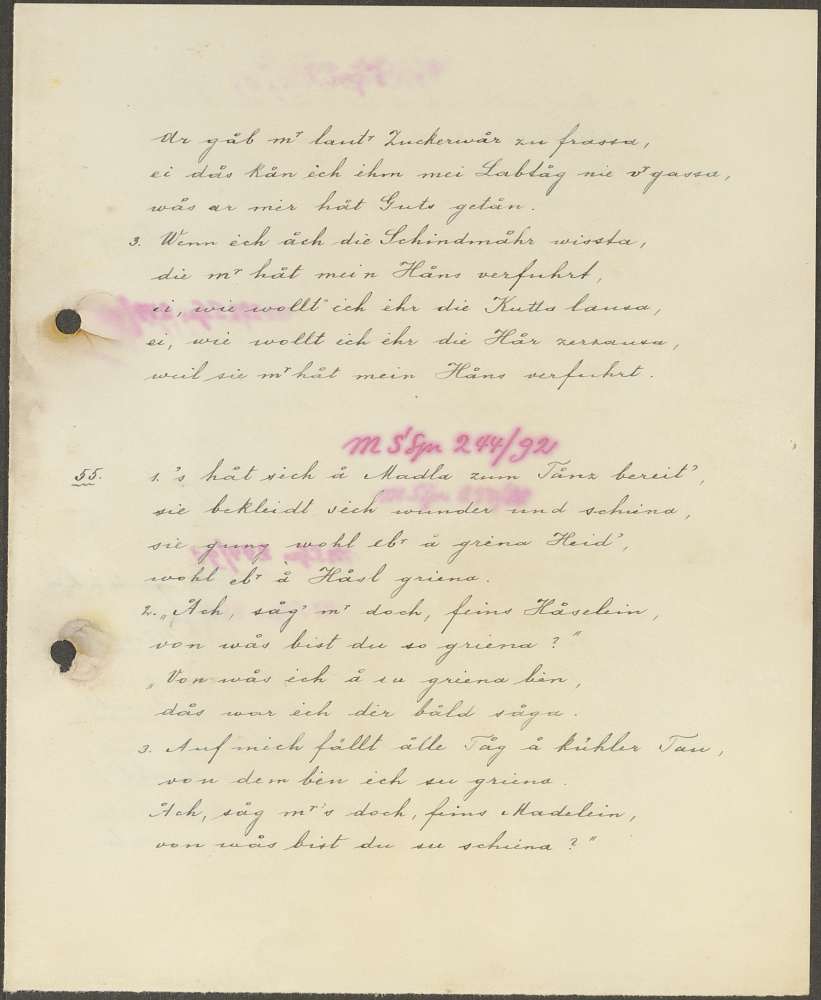 dr gåb mʳ lautʳ Zuckerwår zu frassa,
ei dås kån ich ihm mei Labtåg nie vʳgassa,
wås ar mir håt Guts getån.
3. Wenn ich åch die Schindmåhr wissta,
die mʳ håt mein Håns verfuhrt,
ei, wie wollt' ich ihr die Kutta lausa,
ei, wie wollt ich ihr die Hår zerzausa,
weil sie mʳ håt mein Håns verfuhrt.
M S'Spr 244/92
55. 1. 's håt sich å Madla zum Tånz bereit',
sie bekleidt sich wunder und schiena,
sie gung wohl ebʳ å griena Heid',
wohl ebʳ å Håsl griena.
2. „Åch, såg' mʳ doch, feins Håselein,
von wås bist du so griena?"
„Von wås ich å su griena bin,
dås war ich dir båld såga.
3. Auf mich fållt ålle Tåg å kühler Tau,
von dem bin ich su griena.
Åch, såg mʳ's doch, feins Madelein,
von wås bist du su schiena?"